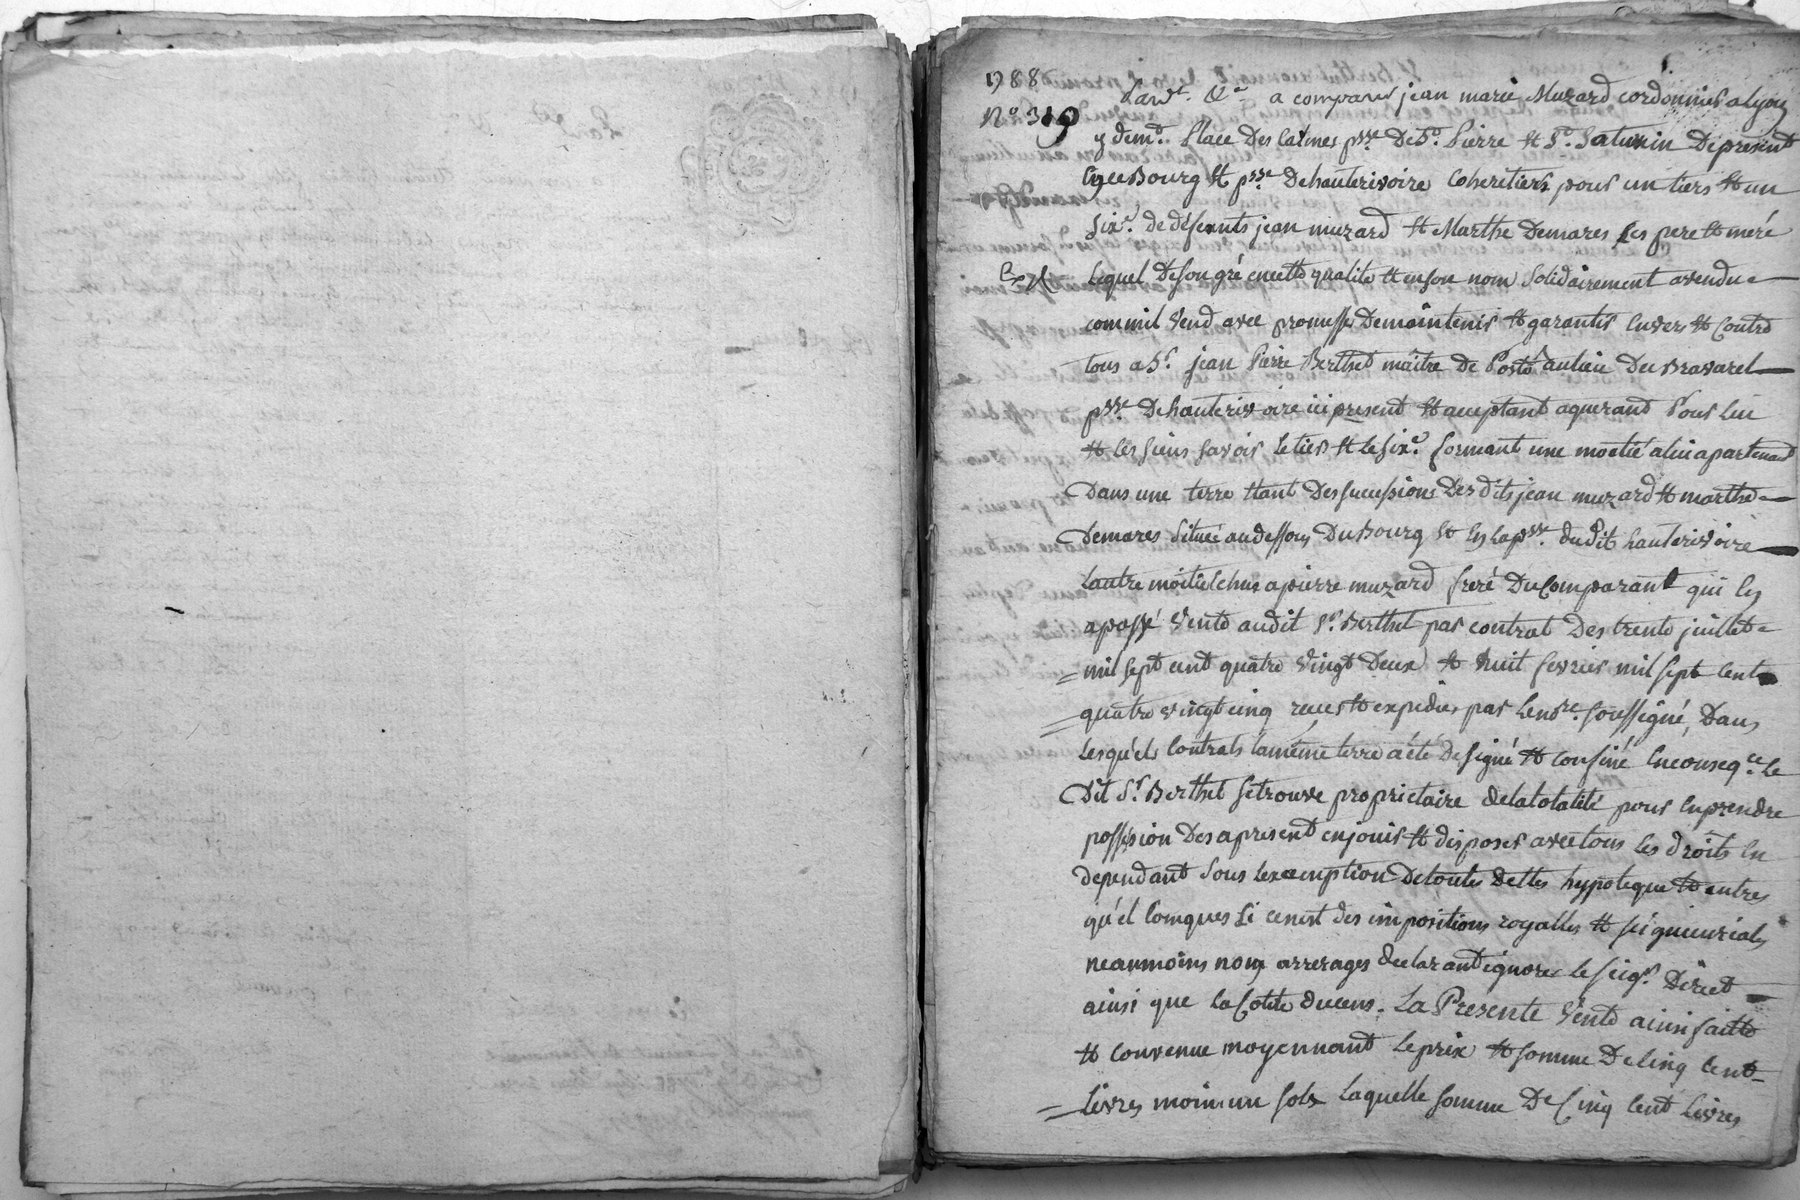 1788
N° 319
Pard.t &a a comparu jean marie Muzard cordonnier a Lyon
y dem.t Place Des Carmes p.sse De S.t Pierre et S.t Saturnin De present
en ce Bourg et p.sse De hauterivoire Coheretiers pour un tiers et un
six.e de défunts jean muzard et Marthe Demares ses pere et mere
lequel De son gré en cette qualite et en son nom solidairement a vendu
comm'il vend avec promesse De maintenir et garantir envers et contre
tous a S.r jean Pierre Berthet maitre de Poste au lieu Du Bravaret
p.sse De hauterivoire ici present et acceptant aquerant Pour lui
et les siens savoir le tier et le six.e formant une moetié a lui apartenant
Dans une terre etant Des successions Des d'its jean muzard et marthe
Demares située au dessous Du Bourg et en la p.sse dudit hauterivoire
Lautre moitie echue a pierre muzard frere Du Comparant qui en
a passé vente audit S.r Berthet par contrat Des trente juillet
mil sept cent quatre vingt Deux et huit fevrier mil sept cent
quatre vingt cinq recus et expediés par le no.re soussigné, Dans
lesqu'els Contrats la même terre a été Designé et confiné En conseq.ce le
Dit S.r Berthet se trouve proprietaire de la totalité pour en prendre
possession Des a present en jouir et disposer avec tous les droits en
dependant sous l'exemption De toutes dettes hypoteque et autres
qu'el Conques si cenest des impositions royalles et seigneuriales
neanmoins non arrerages declarant ignorer le seig.r Direct
ainsi que la Cotite du cens. La Presente vente ainsi faitte
et convenue moyennant le prix et somme De Cinq Cent
livres moins un sols laquelle somme De Cinq Cent Livres